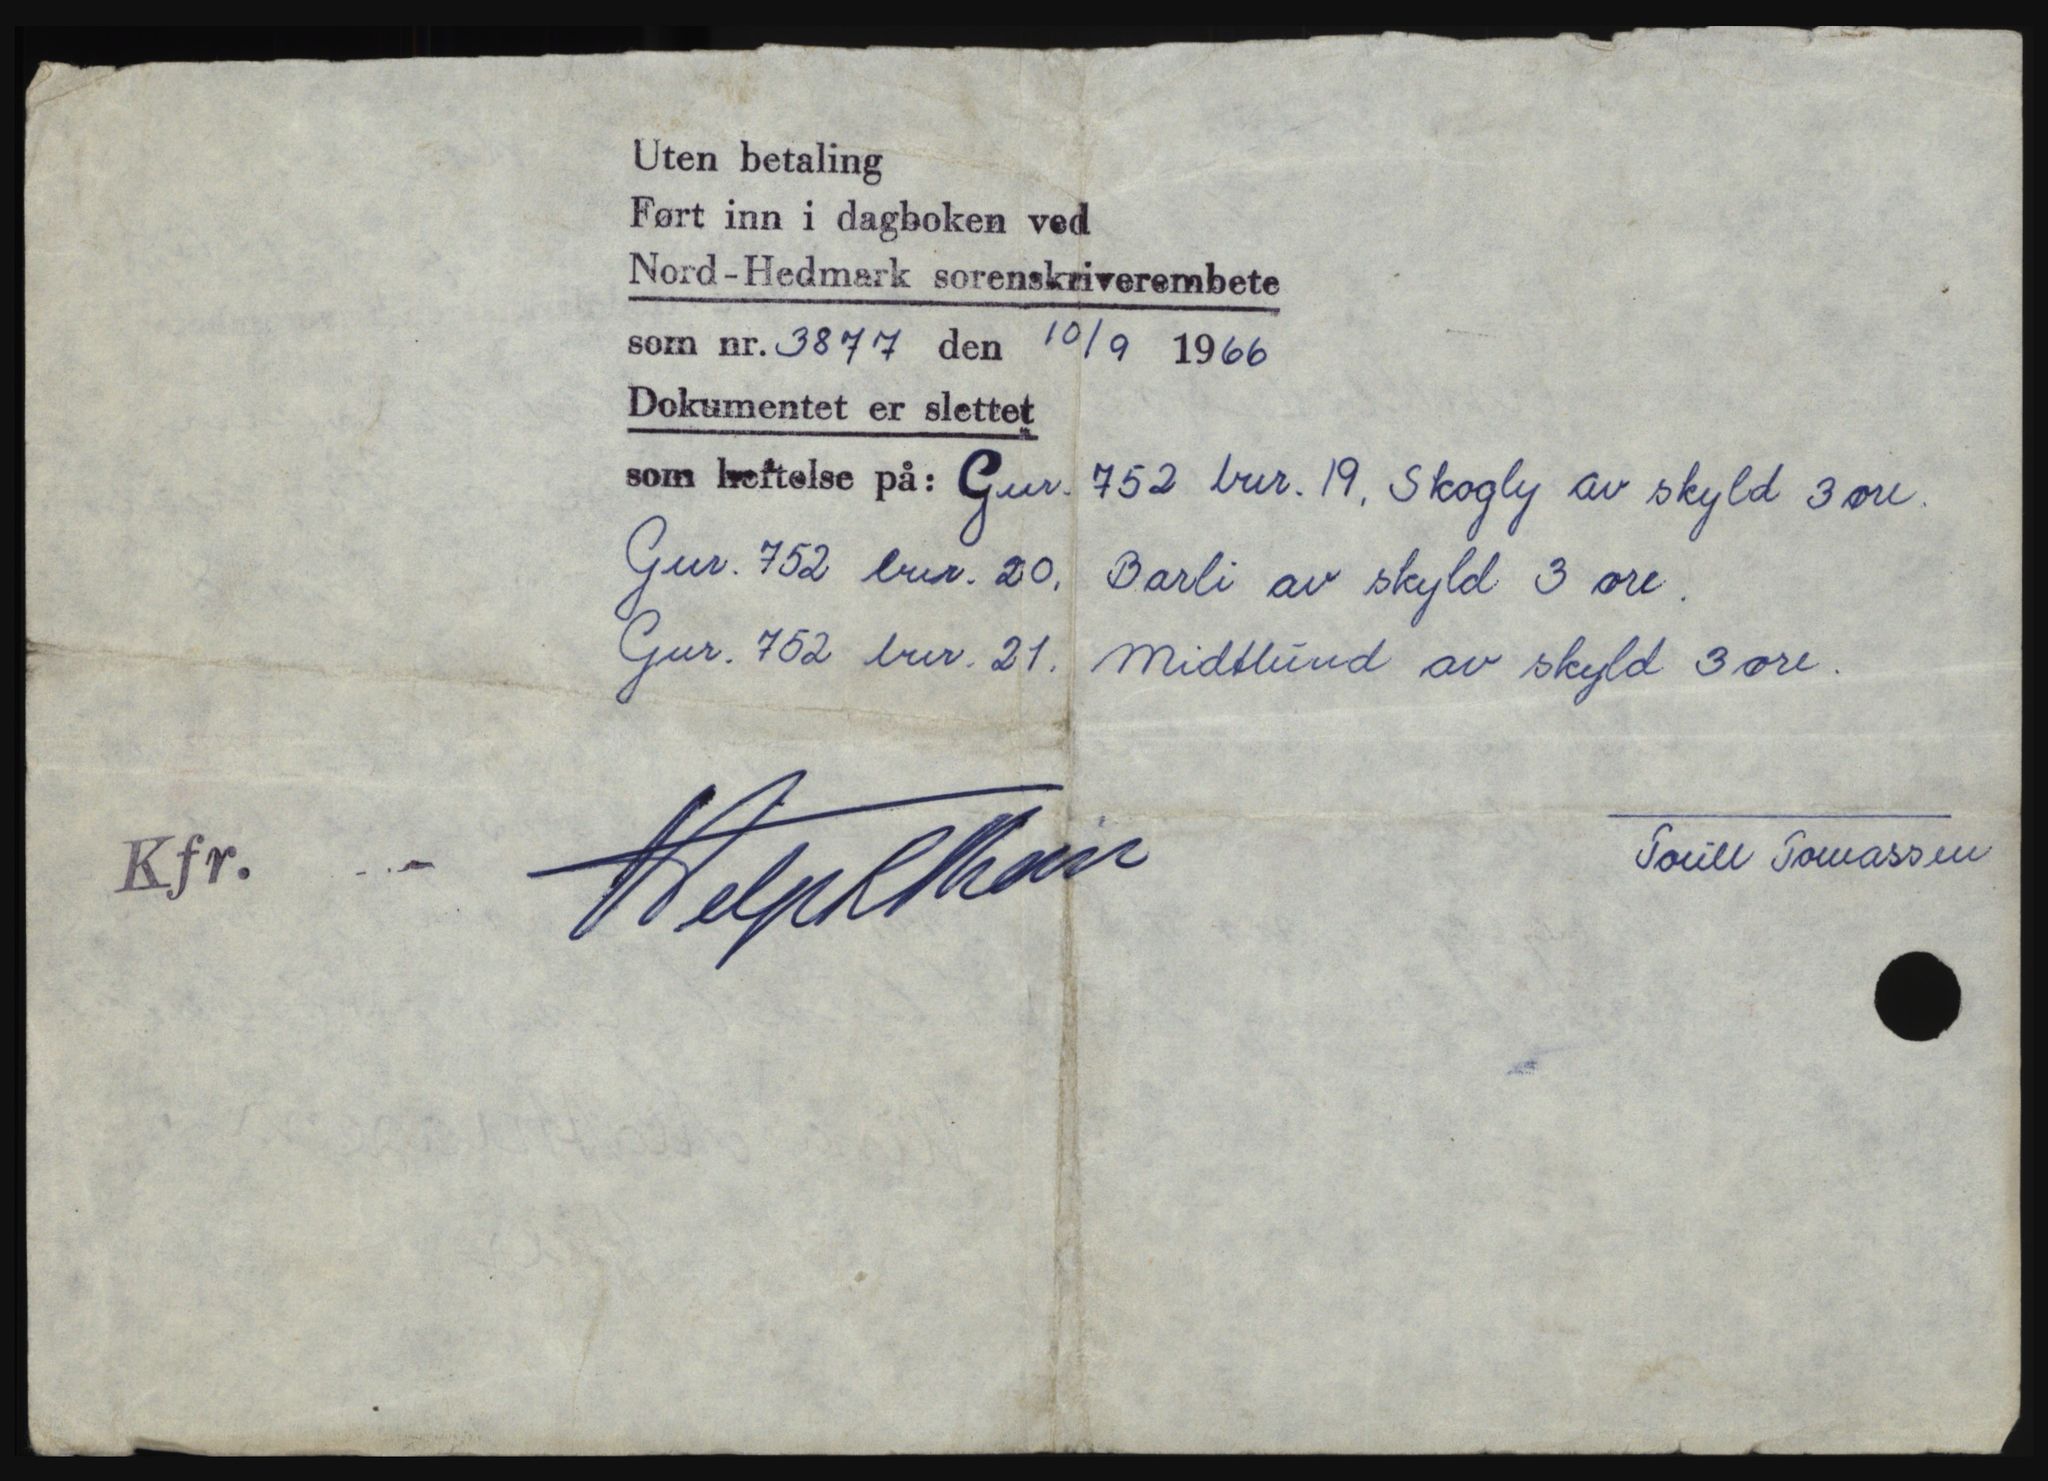 Uten betaling
Ført inn i dagboken ved
Nord-Hedmark sorenskriverembete
som nr. 3877 den 10/9 1966
Dokumentet er slettet
som heftelse på: Gnr. 752 bnr. 19, Skogly av skyld 3 øre.
Gnr. 752 bnr. 20, Barli av skyld 3 øre.
Gnr. 752 bnr. 21. Midtlund av skyld 3 øre.
Kfr. -
Torill Tomassen